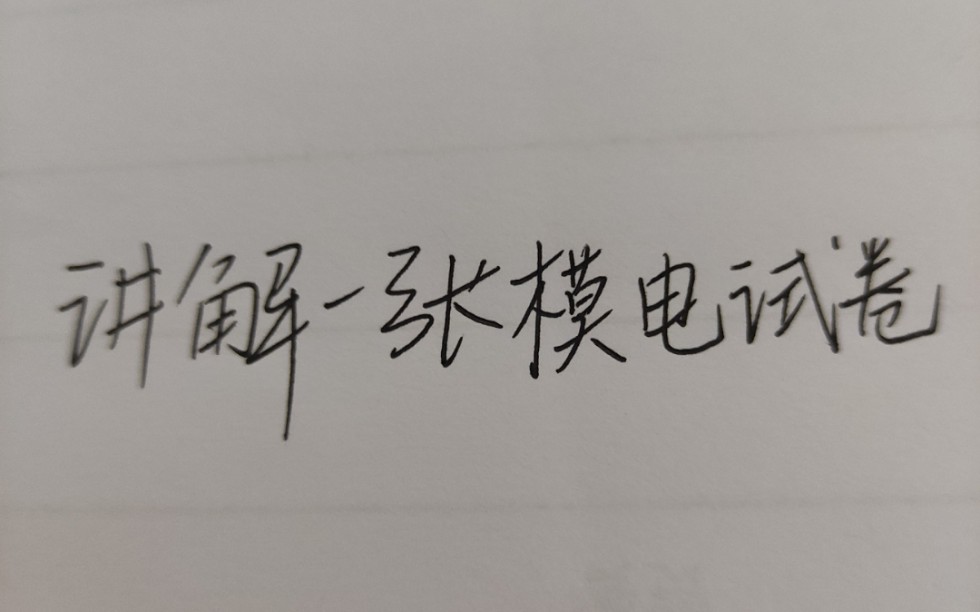 讲解一张模电试卷